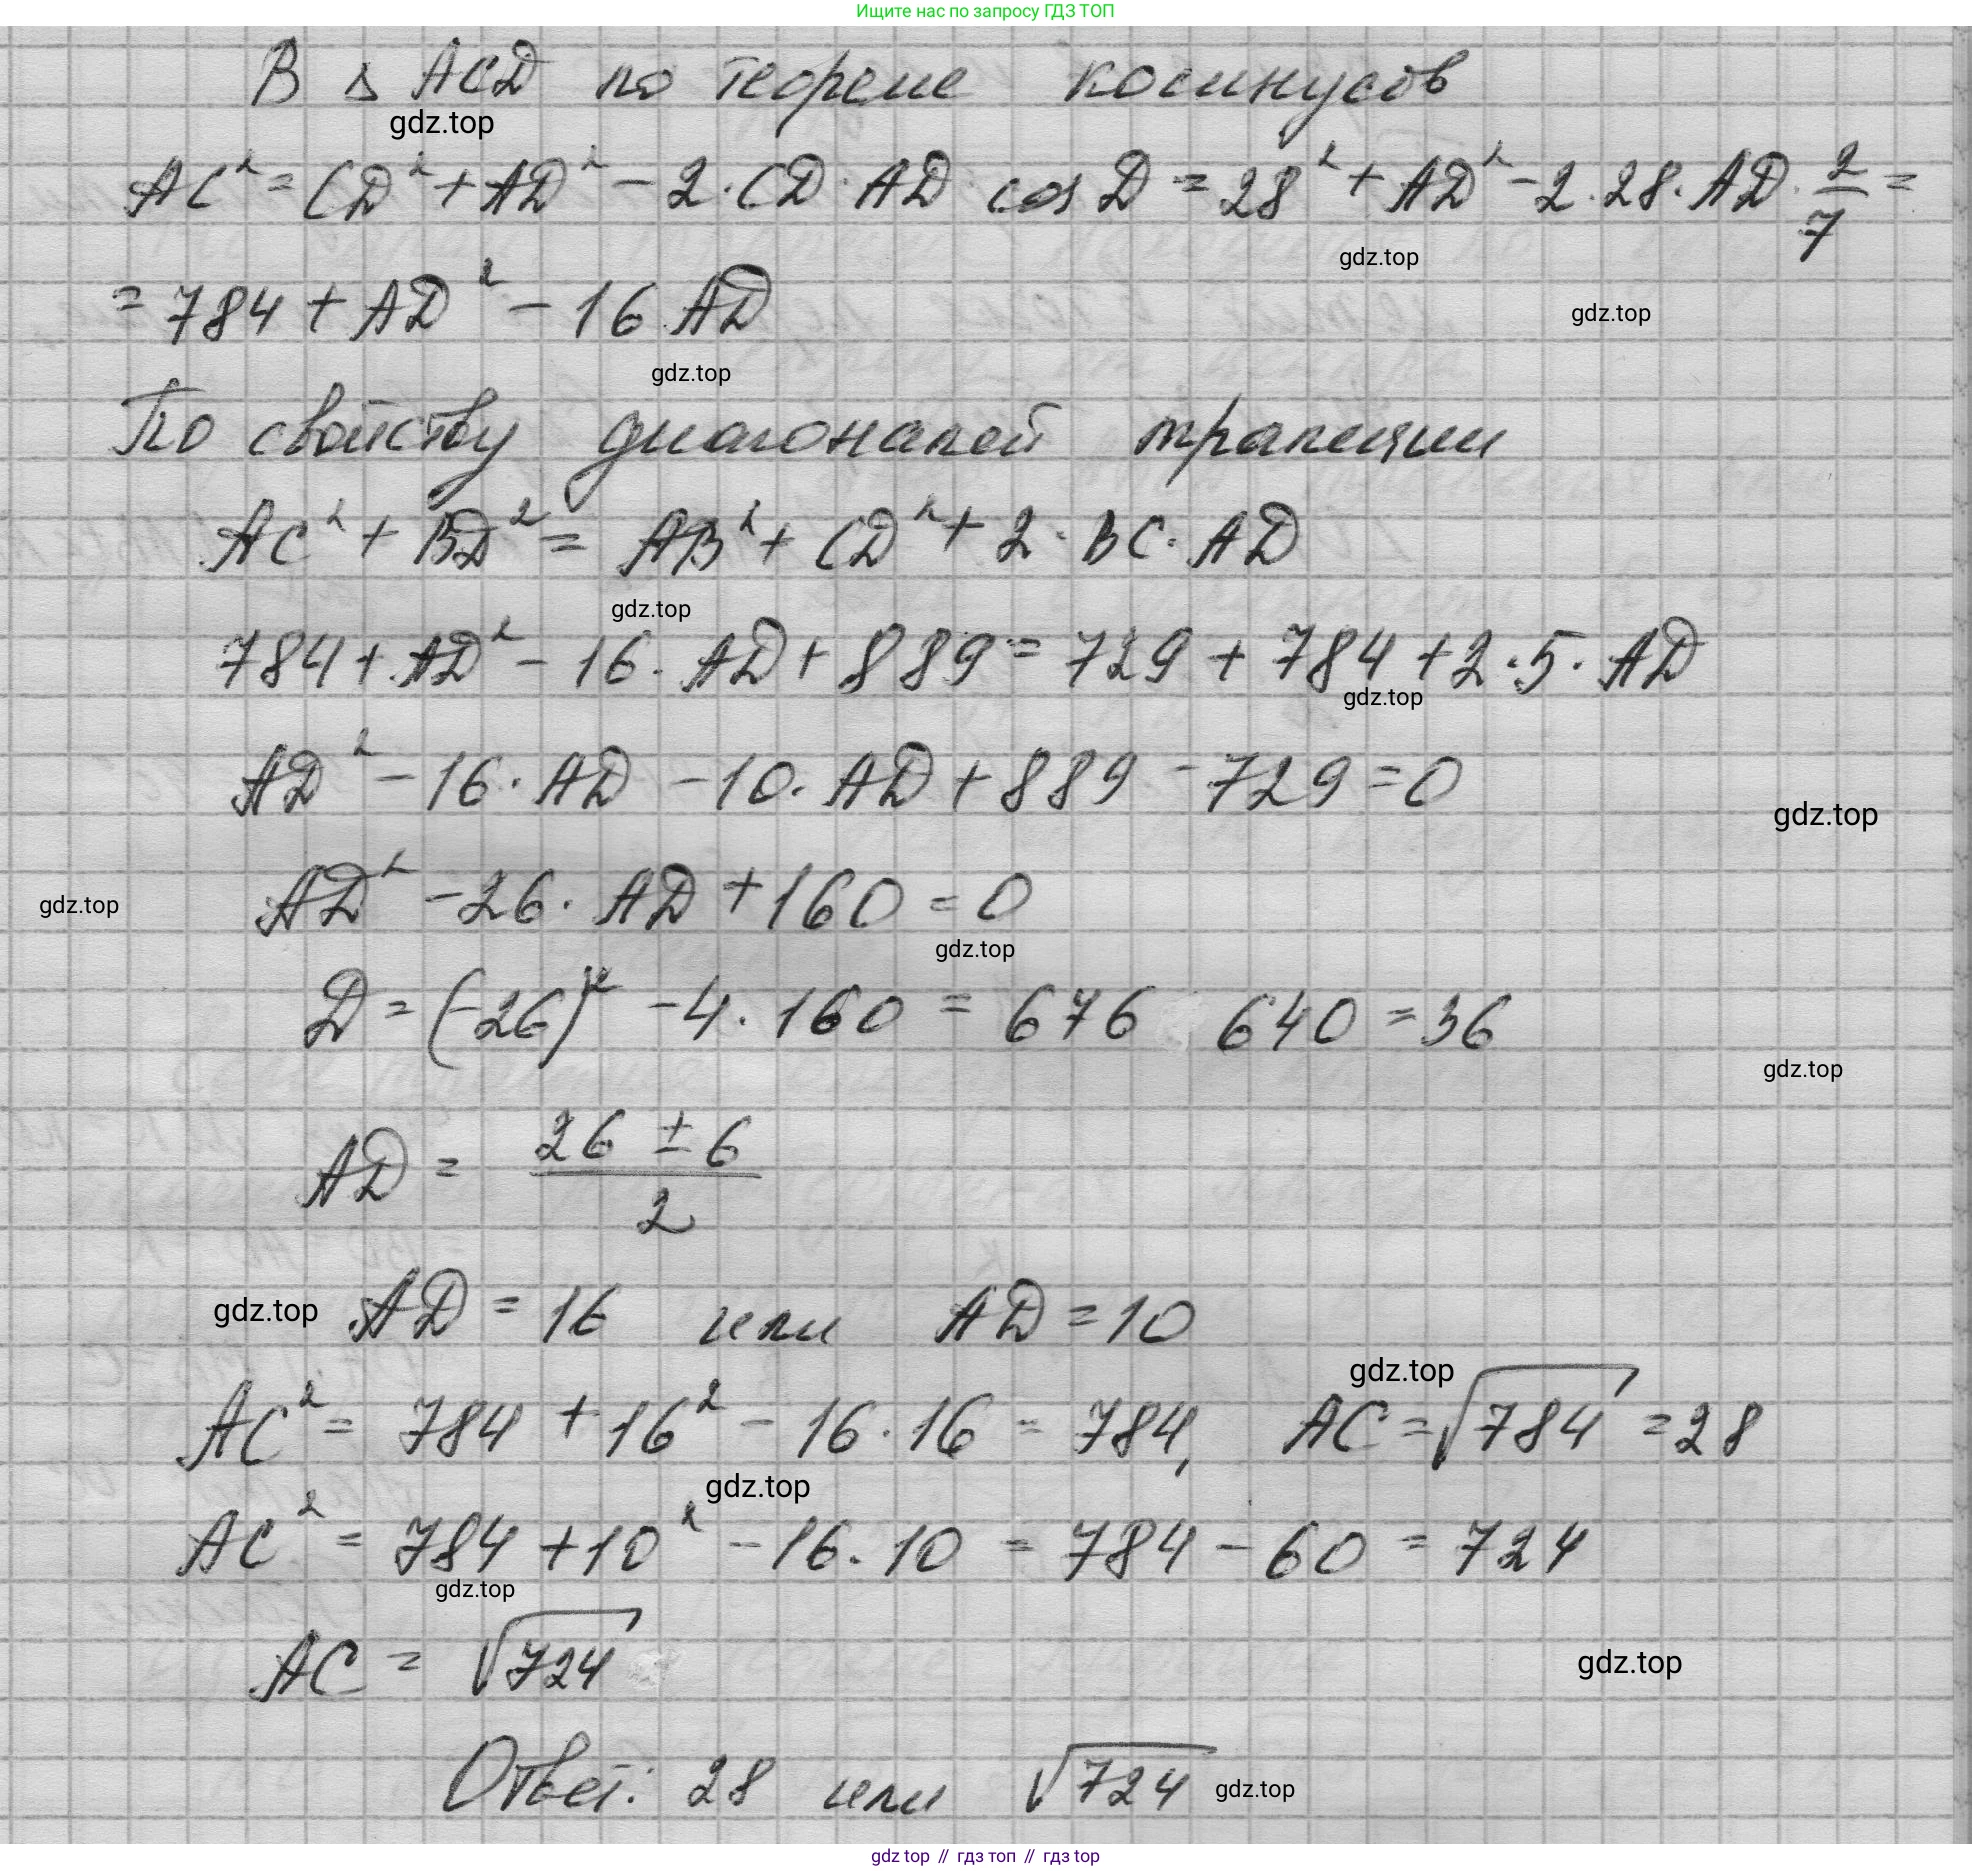 Ищите нас по запросу ГДЗ ТОП
В △ ACD по теореме косинусов
gdz.top
AC² = CD² + AD² - 2 · CD · AD cos D = 28² + AD² - 2 · 28 · AD · 2/7 =
gdz.top
= 784 + AD² - 16 AD
gdz.top
gdz.top
По свойству диагоналей трапеции
AC² + BD² = AB² + CD² + 2 · BC · AD
gdz.top
784 + AD² - 16 · AD + 889 = 729 + 784 + 2 · 5 · AD
gdz.top
AD² - 16 · AD - 10 · AD + 889 - 729 = 0
gdz.top
AD² - 26 · AD + 160 = 0
gdz.top
gdz.top
D = (-26)² - 4 · 160 = 676 640 = 36
gdz.top
AD = 26 ± 6 / 2
gdz.top AD = 16 или AD = 10
gdz.top
AC² = 784 + 16² - 16 · 16 = 784, AC = √784 = 28
gdz.top
AC² = 784 + 10² - 16 · 10 = 784 - 60 = 724
gdz.top
AC = √724
gdz.top
Ответ: 28 или √724 gdz.top
gdz top // гдз топ // гдз top